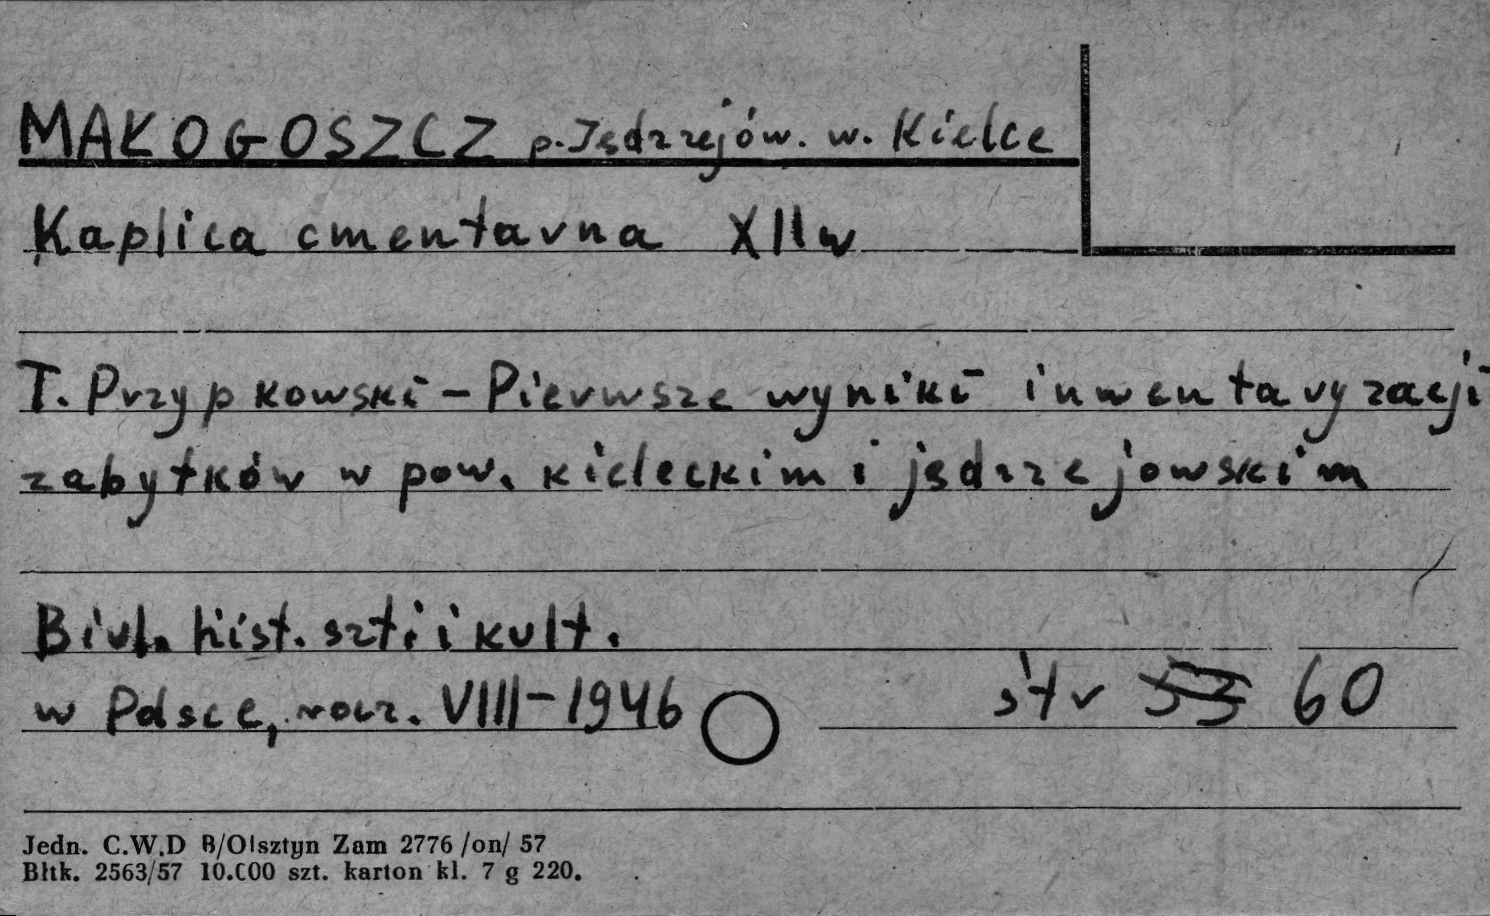 MAŁOGOSZCZ p. Jędrzejów. w. Kielce
Kaplica cmentarna XII w
T. Przypkowski – Pierwsze wyniki inwentaryzacji
zabytków w pow. kieleckim i jędrzejowskim
Biul. hist. szt. i kult.
w Polsce, rocz. VIII – 1946 str 53 60
Jedn. C.W.D B/Olsztyn Zam 2776 /on/ 57
Błtk. 2563/57 10.000 szt. karton kl. 7 g 220.